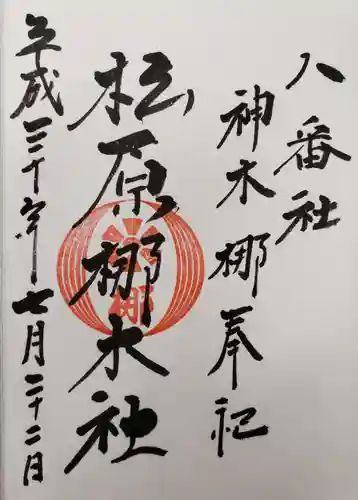 八番社
神木梛奉祀
松原梛木社
平成三十年七月二十二日
梛